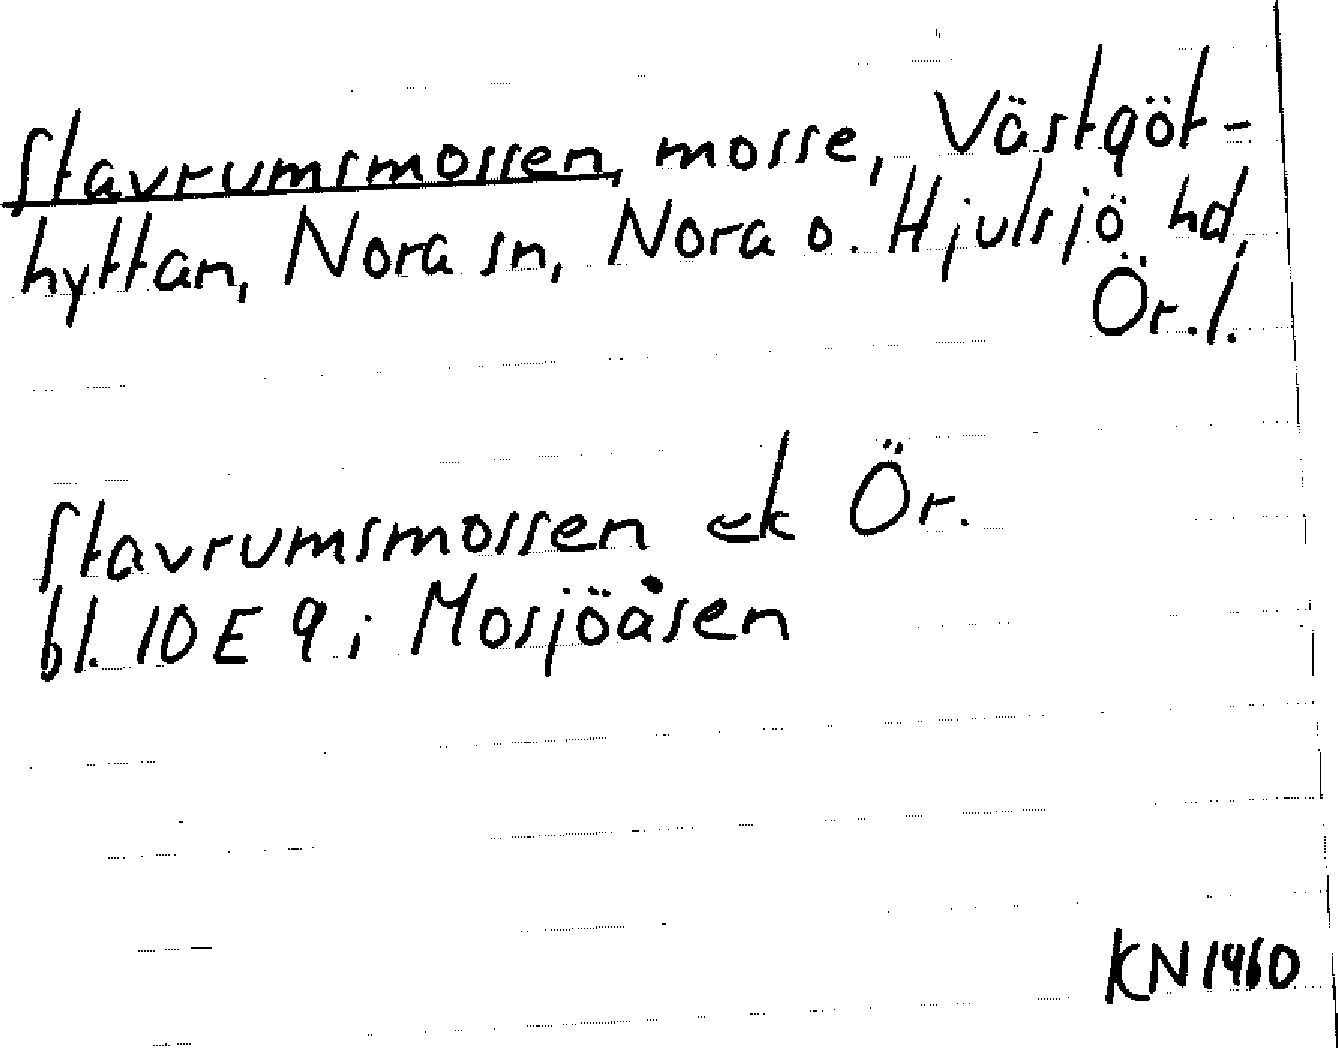 Stavrumsmossen, mosse, Västgöt-
hyttan, Nora sn, Nora o. Hjulsjö hd,
Ör.l.
Stavrumsmossen ek Ör.
bl. 10E 9 i Mosjöåsen
KN 1960